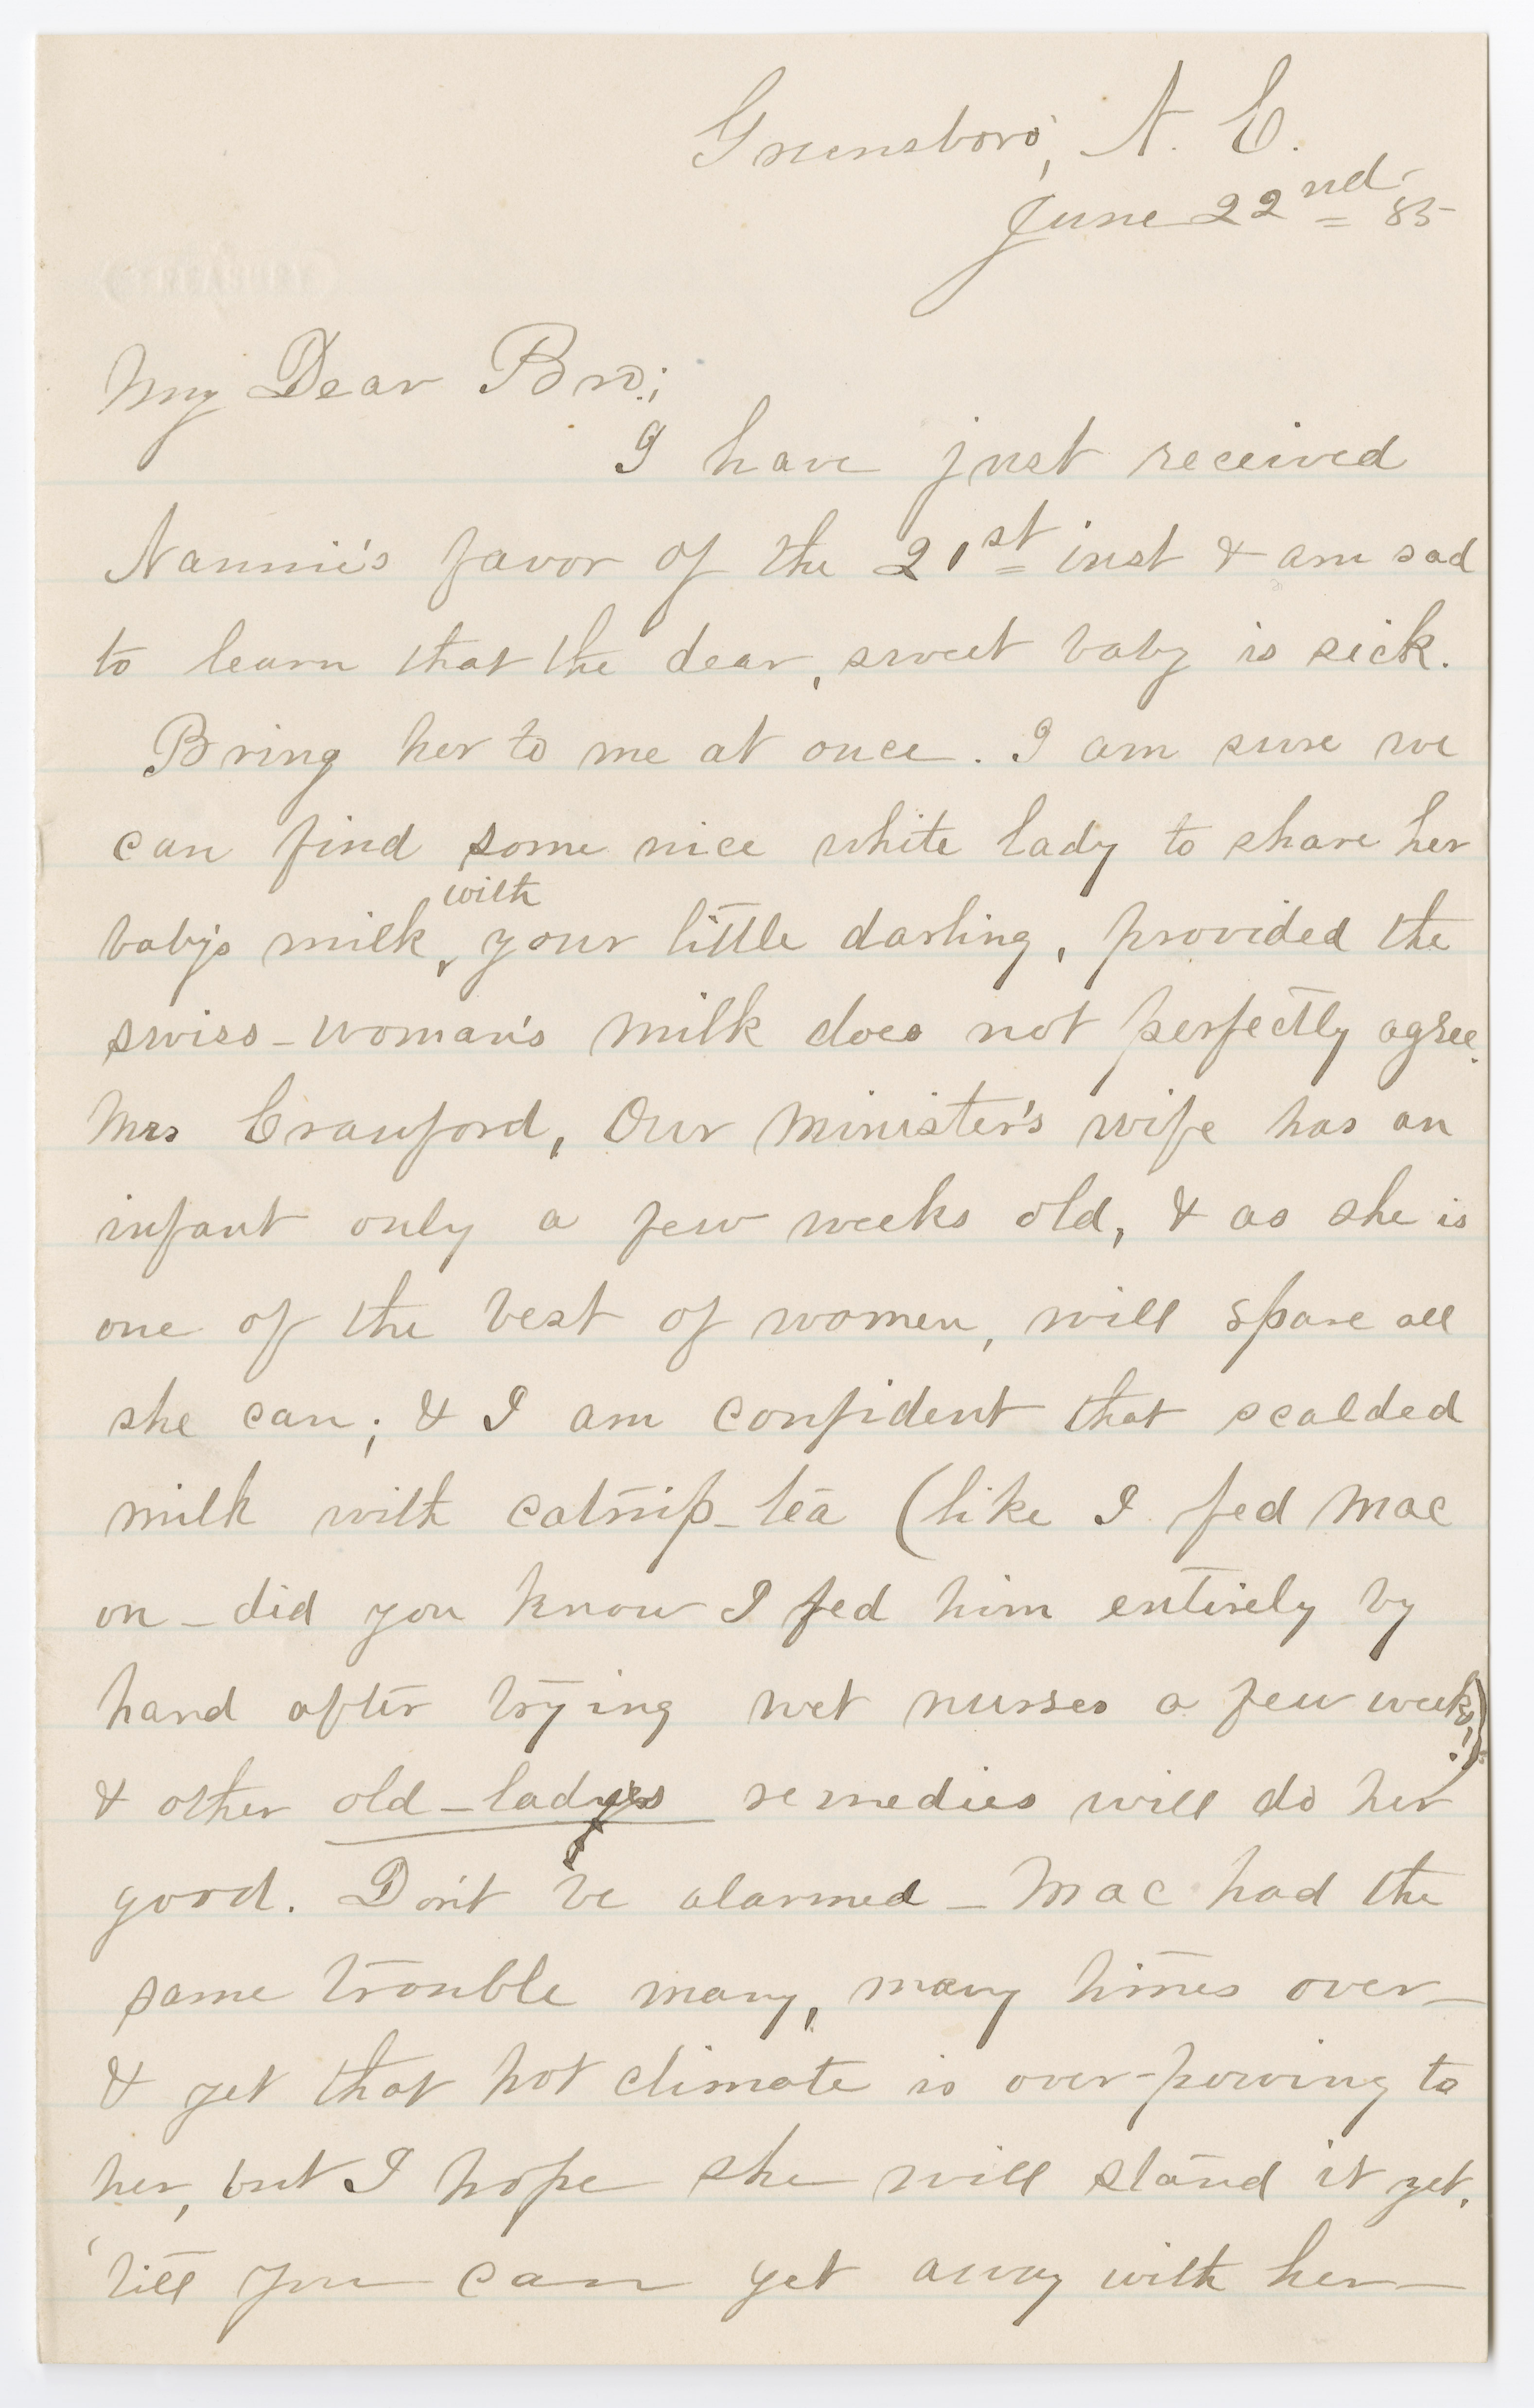 Greensboro', N. C.
June 22nd 85
My Dear Bro.;
I have just received
Nannie's favor of the 21st inst & am sad
to learn that the dear, sweet baby is sick.
Bring her to me at once. I am sure we
can find some nice white lady to share her
with
baby's milk, your little darling, provided the
swiss-woman's milk does not perfectly agree.
Mrs Crawford, Our Minister's wife has an
infant only a few weeks old, & as she is
one of the best of women, will spare all
she can; & I am confident that scalded
milk with catnip-tea (like I fed Mac
on - did you know I fed him entirely by
hand after trying wet nurses a few weeks!)
& other old-ladys remedies will do her
good. Don't be alarmed - Mac had the
same trouble many, many times over -
& yet that hot climate is over-powing to
her, but I hope she will stand it yet,
'till you can get away with her -